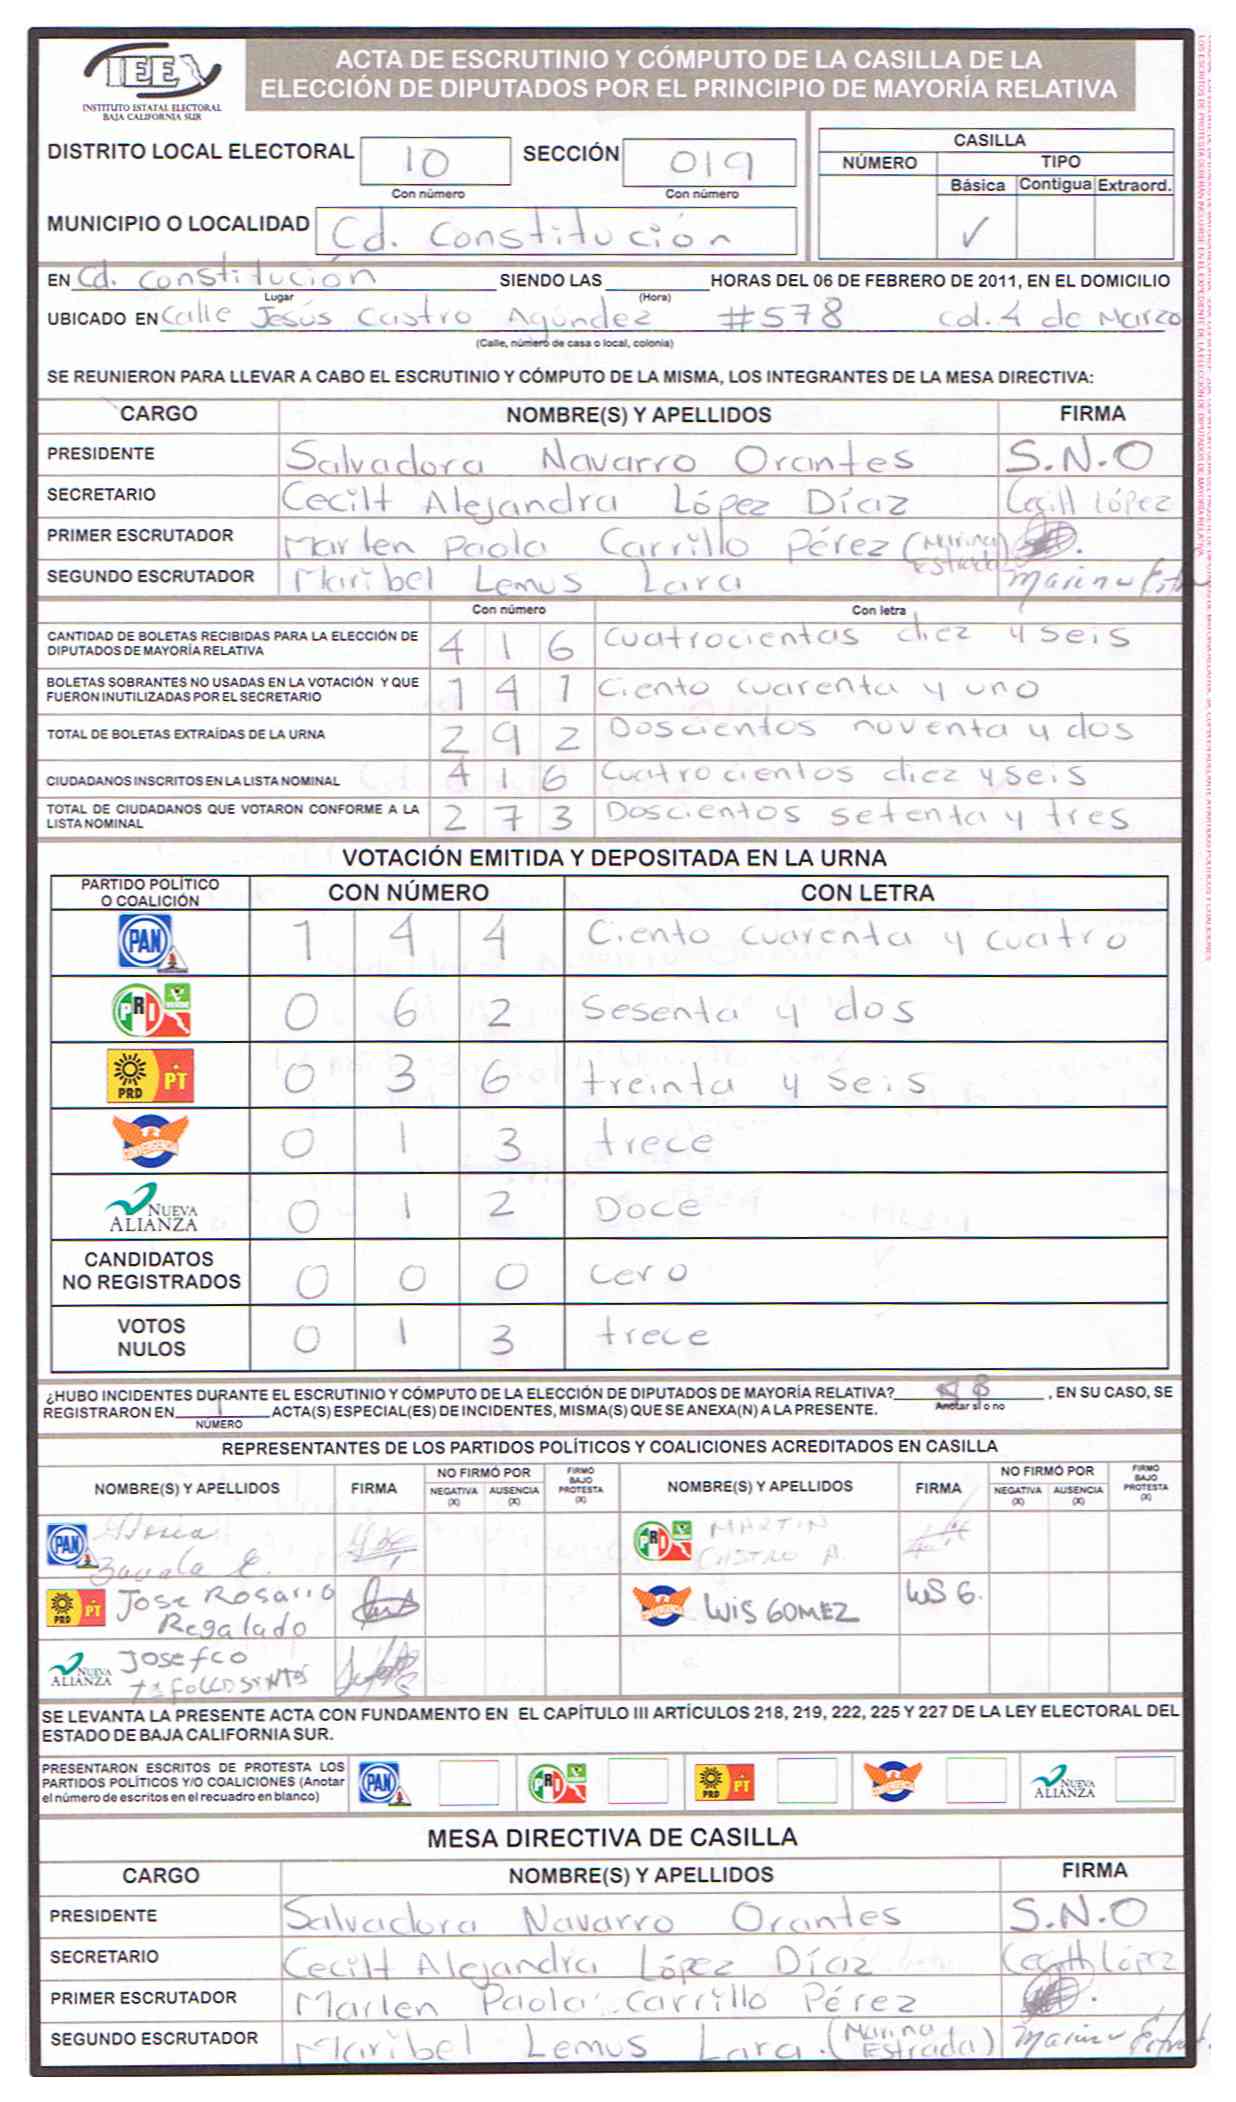 IEE
INSTITUTO ESTATAL ELECTORAL
BAJA CALIFORNIA SUR
ACTA DE ESCRUTINIO Y CÓMPUTO DE LA CASILLA DE LA
ELECCIÓN DE DIPUTADOS POR EL PRINCIPIO DE MAYORÍA RELATIVA
DISTRITO LOCAL ELECTORAL 10 SECCIÓN 019
Con número Con número
CASILLA
NÚMERO TIPO
Básica Contigua Extraord.
✓
MUNICIPIO O LOCALIDAD Cd. Constitución
EN Cd. Constitución SIENDO LAS HORAS DEL 06 DE FEBRERO DE 2011, EN EL DOMICILIO
Lugar (Hora)
UBICADO EN Calle Jesús Castro Agúndez #578 col. 4 de Marzo
(Calle, número de casa o local, colonia)
SE REUNIERON PARA LLEVAR A CABO EL ESCRUTINIO Y CÓMPUTO DE LA MISMA, LOS INTEGRANTES DE LA MESA DIRECTIVA:
CARGO NOMBRE(S) Y APELLIDOS FIRMA
PRESIDENTE Salvadora Navarro Orantes S.N.O
SECRETARIO Cecilt Alejandra López Díaz Cecilt López
PRIMER ESCRUTADOR Marlen Paola Carrillo Pérez (Marina
Estrada)
SEGUNDO ESCRUTADOR Maribel Lemus Lara Marina
Con número Con letra
CANTIDAD DE BOLETAS RECIBIDAS PARA LA ELECCIÓN DE
DIPUTADOS DE MAYORÍA RELATIVA 4 1 6 Cuatrocientas diez y seis
BOLETAS SOBRANTES NO USADAS EN LA VOTACIÓN Y QUE
FUERON INUTILIZADAS POR EL SECRETARIO 1 4 1 Ciento cuarenta y uno
TOTAL DE BOLETAS EXTRAÍDAS DE LA URNA 2 9 2 Doscientos noventa y dos
CIUDADANOS INSCRITOS EN LA LISTA NOMINAL 4 1 6 Cuatrocientos diez y seis
TOTAL DE CIUDADANOS QUE VOTARON CONFORME A LA
LISTA NOMINAL 2 7 3 Doscientos setenta y tres
VOTACIÓN EMITIDA Y DEPOSITADA EN LA URNA
PARTIDO POLÍTICO
O COALICIÓN CON NÚMERO CON LETRA
PAN 1 4 4 Ciento cuarenta y cuatro
PRI VERDE 0 6 2 Sesenta y dos
PRD PT 0 3 6 treinta y seis
CONVERGENCIA 0 1 3 trece
NUEVA
ALIANZA 0 1 2 Doce
CANDIDATOS
NO REGISTRADOS 0 0 0 cero
VOTOS
NULOS 0 1 3 trece
¿HUBO INCIDENTES DURANTE EL ESCRUTINIO Y CÓMPUTO DE LA ELECCIÓN DE DIPUTADOS DE MAYORÍA RELATIVA? , EN SU CASO, SE
Anotar sí o no
REGISTRARON EN 1 ACTA(S) ESPECIAL(ES) DE INCIDENTES, MISMA(S) QUE SE ANEXA(N) A LA PRESENTE.
NÚMERO
REPRESENTANTES DE LOS PARTIDOS POLÍTICOS Y COALICIONES ACREDITADOS EN CASILLA
NOMBRE(S) Y APELLIDOS FIRMA NO FIRMÓ POR NEGATIVA (X) AUSENCIA (X) FIRMÓ BAJO PROTESTA (X) NOMBRE(S) Y APELLIDOS FIRMA NO FIRMÓ POR NEGATIVA (X) AUSENCIA (X) FIRMÓ BAJO PROTESTA (X)
PAN PRI VERDE MARTIN
CASTRO A.
PRD PT Jose Rosario CONVERGENCIA LUIS GOMEZ LUS G.
Regalado
NUEVA
ALIANZA Josefco
SE LEVANTA LA PRESENTE ACTA CON FUNDAMENTO EN EL CAPÍTULO III ARTÍCULOS 218, 219, 222, 225 Y 227 DE LA LEY ELECTORAL DEL
ESTADO DE BAJA CALIFORNIA SUR.
PRESENTARON ESCRITOS DE PROTESTA LOS
PARTIDOS POLÍTICOS Y/O COALICIONES (Anotar
el número de escritos en el recuadro en blanco)
PAN PRI VERDE PRD PT CONVERGENCIA NUEVA ALIANZA
MESA DIRECTIVA DE CASILLA
CARGO NOMBRE(S) Y APELLIDOS FIRMA
PRESIDENTE Salvadora Navarro Orantes S.N.O
SECRETARIO Cecilt Alejandra López Díaz Cecilt López
PRIMER ESCRUTADOR Marlen Paola Carrillo Pérez
SEGUNDO ESCRUTADOR Maribel Lemus Lara. (Marina
Estrada) Marina